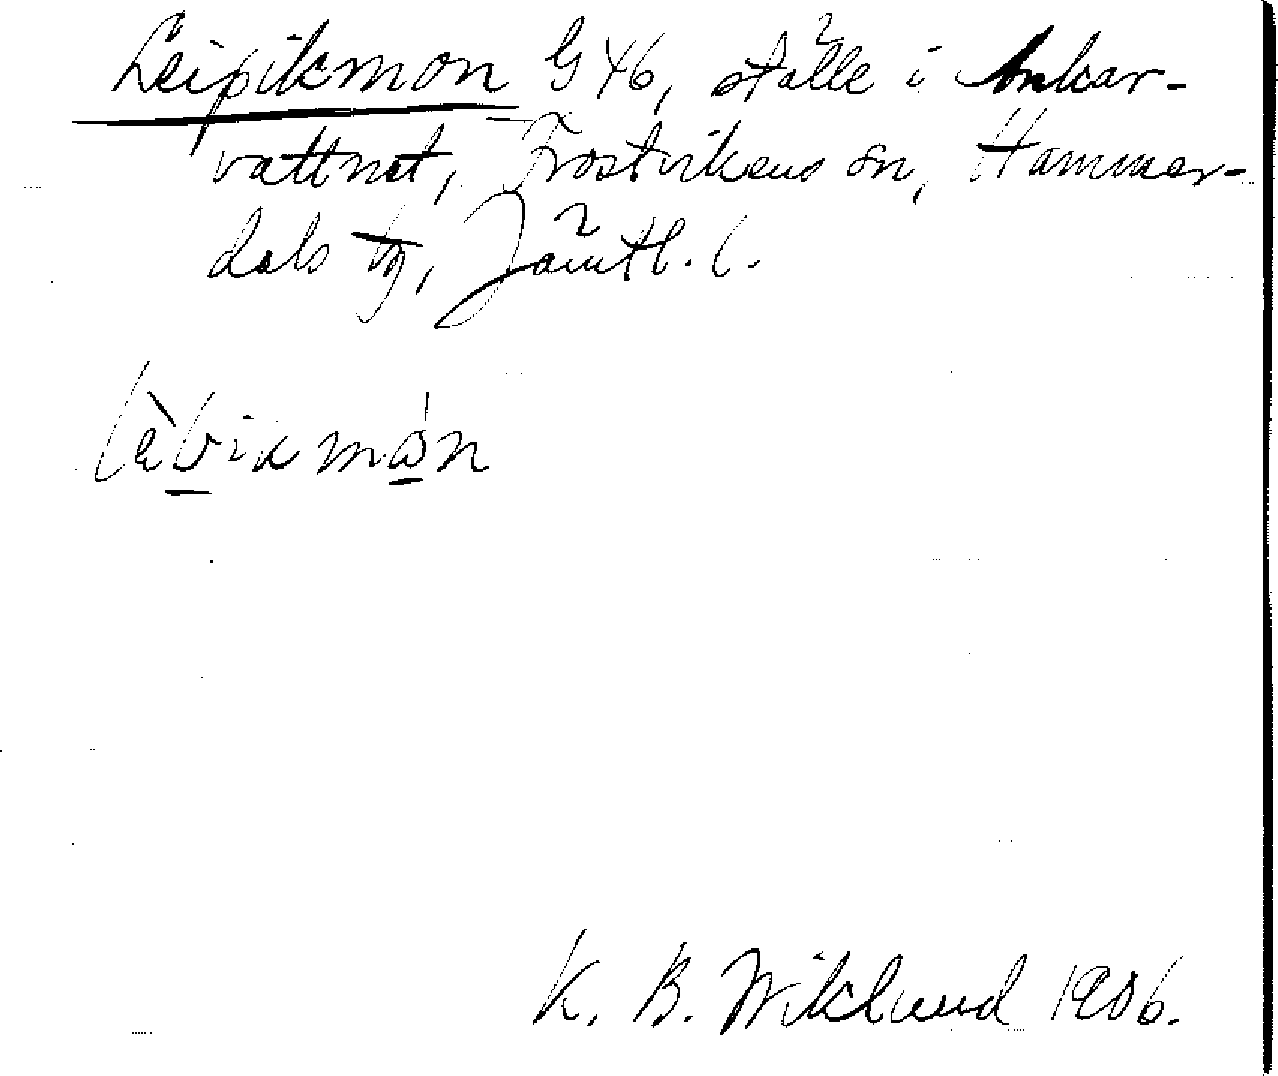 Leipikmon G 46, ställe i Ankar-
vattnet, Frostvikens sn, Hammer-
dals tg, Jämtl. l.
làbikmån
K. B. Wiklund 1906.